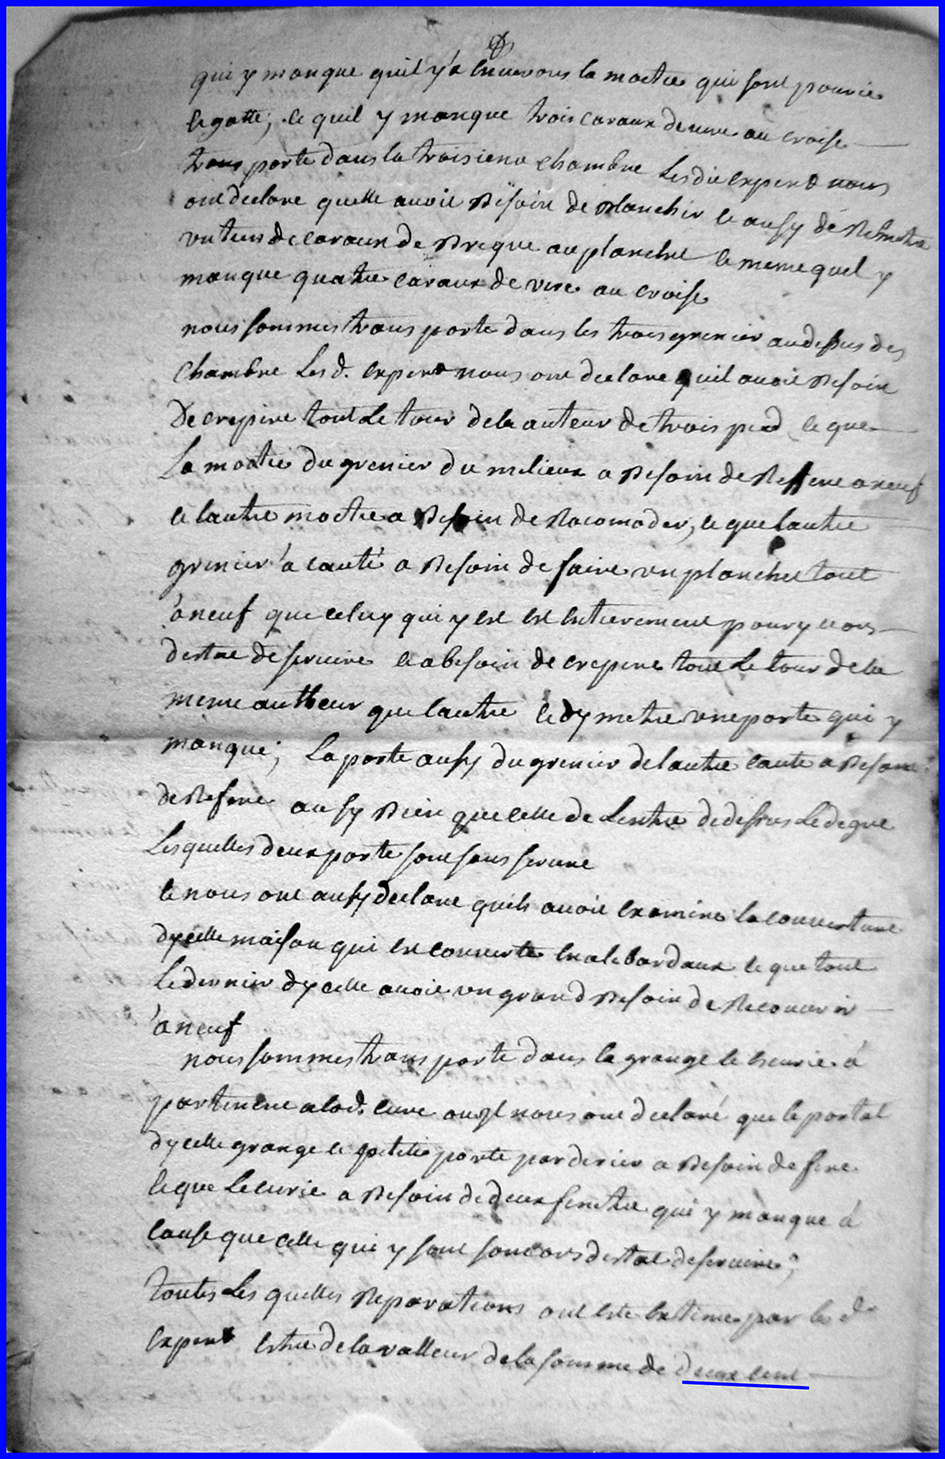 qui y manque quil y'a Environs la moctie qui sont pourie
le gatte; le quil y manque trois caraux de vire au croise
trans porte dans la troisieme chambre Lesdit expert nous
ont declare quelle avoit Besoin de Blanchir le ausy de Remetre
un tiers de caraux de Breque au planche le meme quel y
manque quatre caraux de vire au croise
nous sommes trans porte dans les trois grenier au desus des
chambre Les d. expert nous ont declare quil avoit Besoin
De crepire tout Le tour de la auteur de trois pied le que
La moctie du grenier du milieux a Besoin de Refaire a neuf
le lautre moctie a Besoin de Racomoder, le que lautre
grenier à cauté a Besoin de faire un planche tout
à neuf que celuy qui y est est Entierement poury et ors
destat de servire et a besoin de crepire tout Le tour de la
meme autheur que lautre le dy metre une porte qui y
manque; La porte ausy du grenier de lautre caute a Besoin
de Refaire ausy Bien que celle de Lentre de desus Le degre
Lesquelles deux porte sont sans serrure
le nous ont ausy declare quils avoit examine la couverture
dycelle maison qui est couverte en de bardaux le que tout
Le dernier dycelle avoit un grand Besoin de Recouvrir
à neuf
nous sommes trans porte dans la grange le heurie à
partenent a lad. cure ou yl nous ont declaré que le portal
dycelle grange le petite porte par derier a Besoin de fere
le que Lecurie a Besoin de deux fenetre qui y manque à
cause que celle qui y sont sont ors destat de servire;
toutes Les quelles Reparations ont ete Estime par les d.
Expert Estre de la valleur de la somme de deux cent